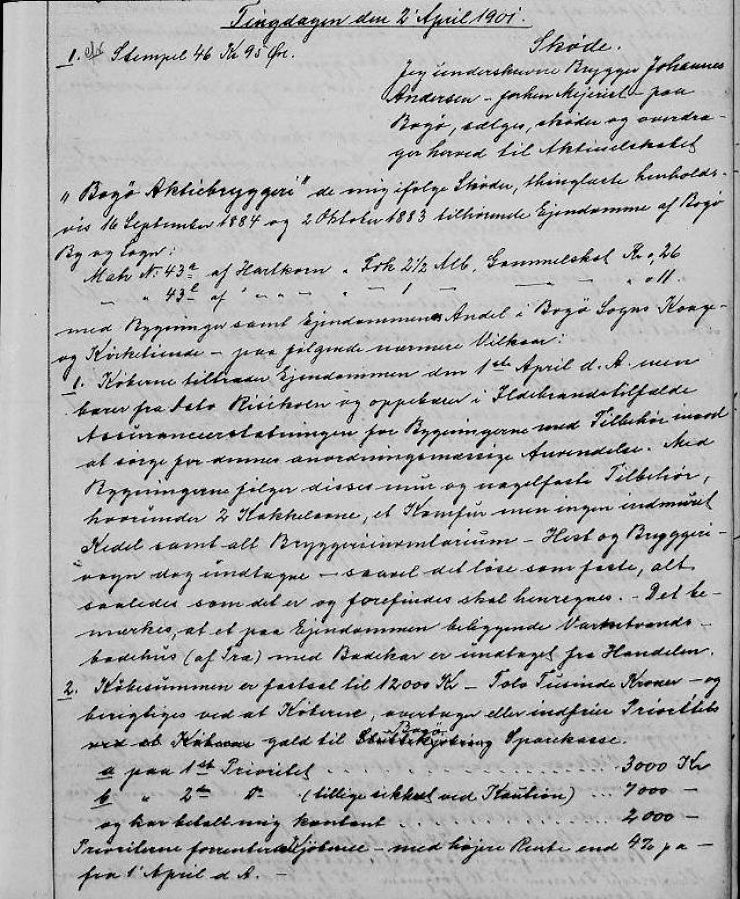 Tingdagen den 2' April 1901.
1. Stempel 46 Kr 95 Øre.
Skøde.
Jeg underskrevne Brygger Johannes
Andersen - forhen Mejerist - paa
Bogö, sælger, skøder og overdra-
ger herved til Aktieselskabet
"Bogö Aktiebryggeri" de mig ifølge Skøder, thinglæste henholds-
vis 16 September 1884 og 2 Oktober 1883 tilhörende Ejendomme af Bogö
By og Sogn:
Matr N: 43a af Hartkorn " Fdk 2 1/2 Alb. Gammelskat Kr 0,26
— " 43 af " — " — " 1 — — — " 0 11
med Bygninger samt Ejendommenes Andel i Bogö Sogns Konge-
og Kirketiende - paa følgende nærmere Vilkaar:
1. Köberne tiltræder Ejendommen den 1ste April d. A. men
bærer fra Dato Risikoen og oppebærer i Ildebrandstilfælde
Assuranceerstatningen for Bygningerne med Tilbehör imod
at sörge for dennes anordningsmæssige Anvendelse. Med
Bygningerne fölger disses mur og nagelfaste Tilbehör,
hvorunder 2 Kakkelovne, et Komfur men ingen indmuret
Kedel samt alt Bryggeriinventarium - Hest og Bryggeri-
vogn dog undtagne - saavel det löse som faste, alt
saaledes som det er og forefindes skal henregnes. - Det be-
mærkes, at et paa Ejendommen beliggende Varmtvands-
badehus (af Træ) med Badekar er undtaget fra Handelen.
2. Købesummen er fastsat til 12000 Kr - Tolv Tusinde Kroner - og
berigtiges ved at Köberne, overtager eller indfrier Prioritets
ved at Köberne gæld til Bogö Sparekasse.
a paa 1ste Prioritet . . . . . . . . . . 3000 Kr
b " 2den Do (tillige sikket ved Kaution) . . . 7000 —
og har betalt mig kontant . . . . . . . . 2000 —
Prioriterne forrenter Kjöberne - med höjere Rente end 4% pa -
fra 1' April d. A. —